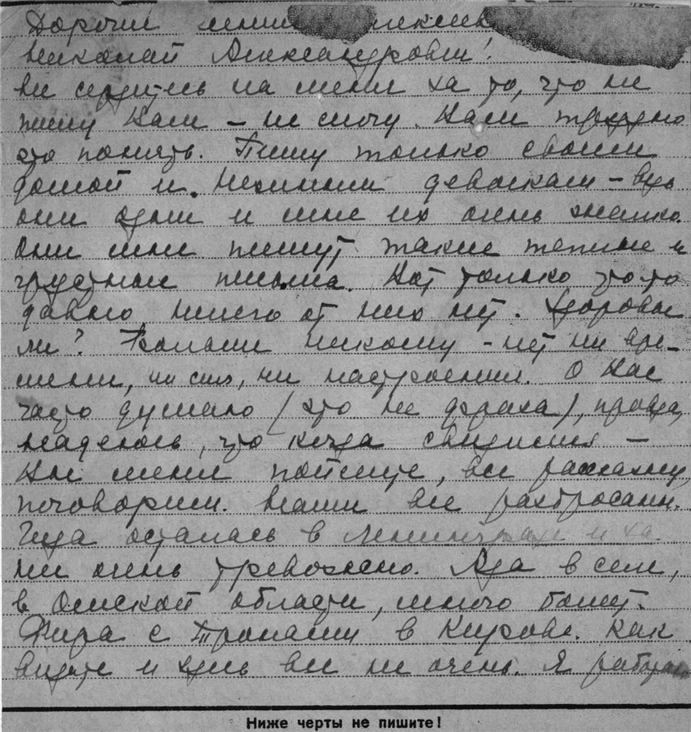 Дорогой
Николай Александрович!
Вы сердитесь на меня за то, что не
пишу Вам – не могу. Вам трудно
это понять. Пишу только своим
домой и девочкам – ведь
они одни и мне их очень жалко.
Они мне пишут такие теплые и
грустные письма. Вот только что-то
давно ничего от них нет. Здоровы
ли? Больше никому – нет ни вре-
мени, ни сил, ни настроения. О Вас
часто думаю (это не фраза), правда,
надеюсь, что когда свидимся –
Вы меня поймете, все расскажу,
поговорим. Наши все разбросаны.
осталась в Ленинграде и за
нее очень тревожно. Ада в селе,
в Омской области, много болеет.
Фира с в Кирове. Как
видите и здесь все не очень. Я работаю
Ниже черты не пишите!